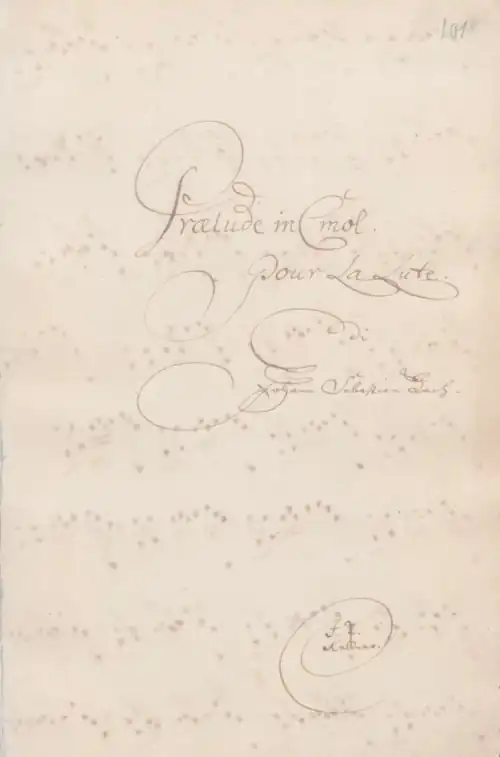 101
Prælude in C mol.
pour La Lute.
di
Johann Sebastian Bach.
J. P.